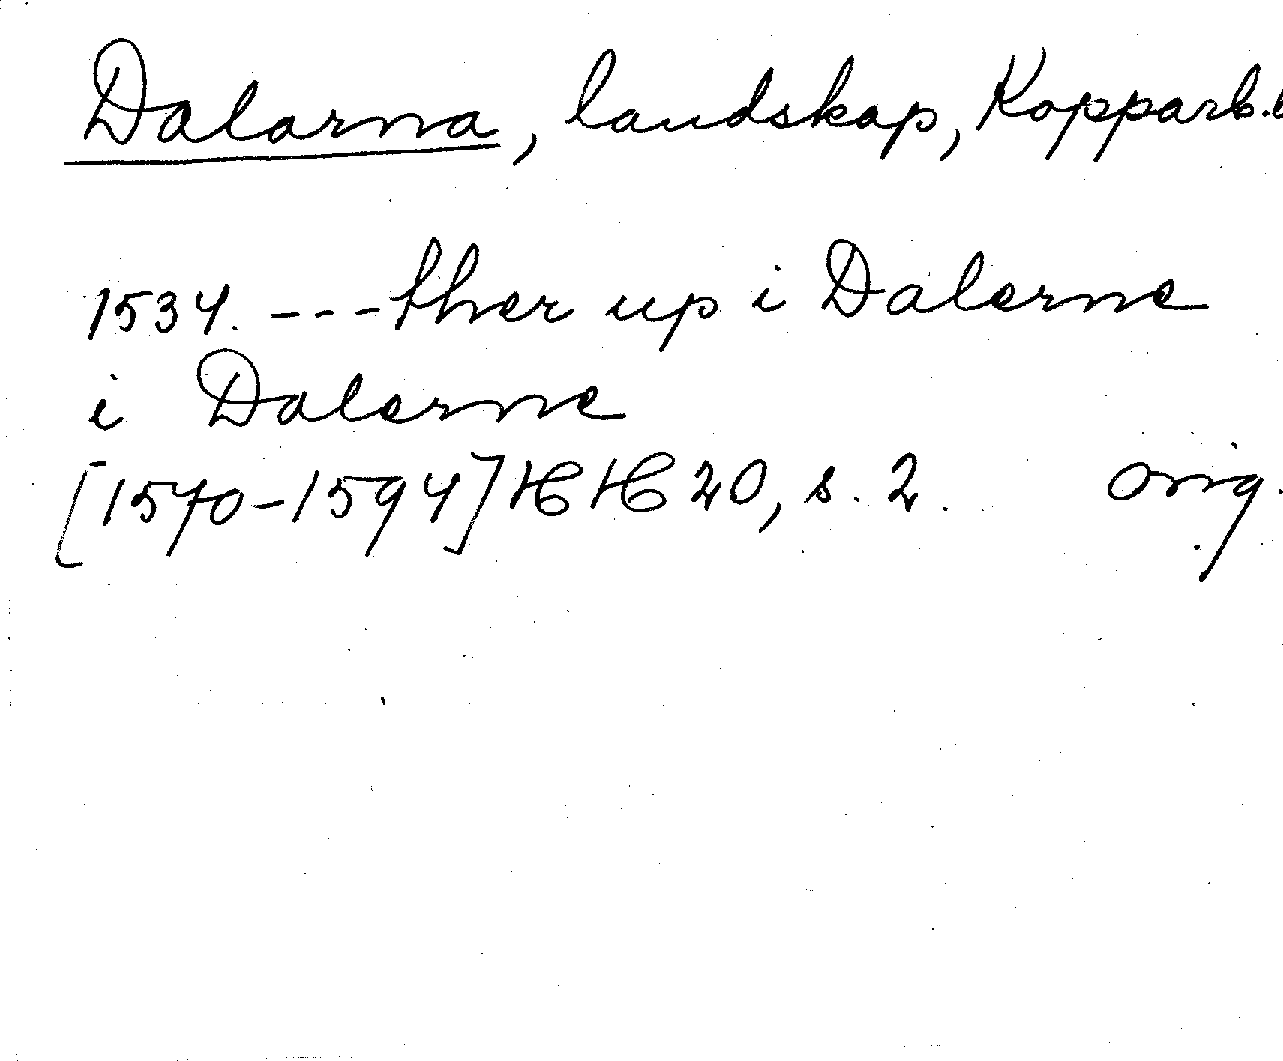 Dalarna, landskap, Kopparb.l
1534. --- ther up i Dalerne
i Dalerne
[1570-1594] HH 20, s. 2. orig.